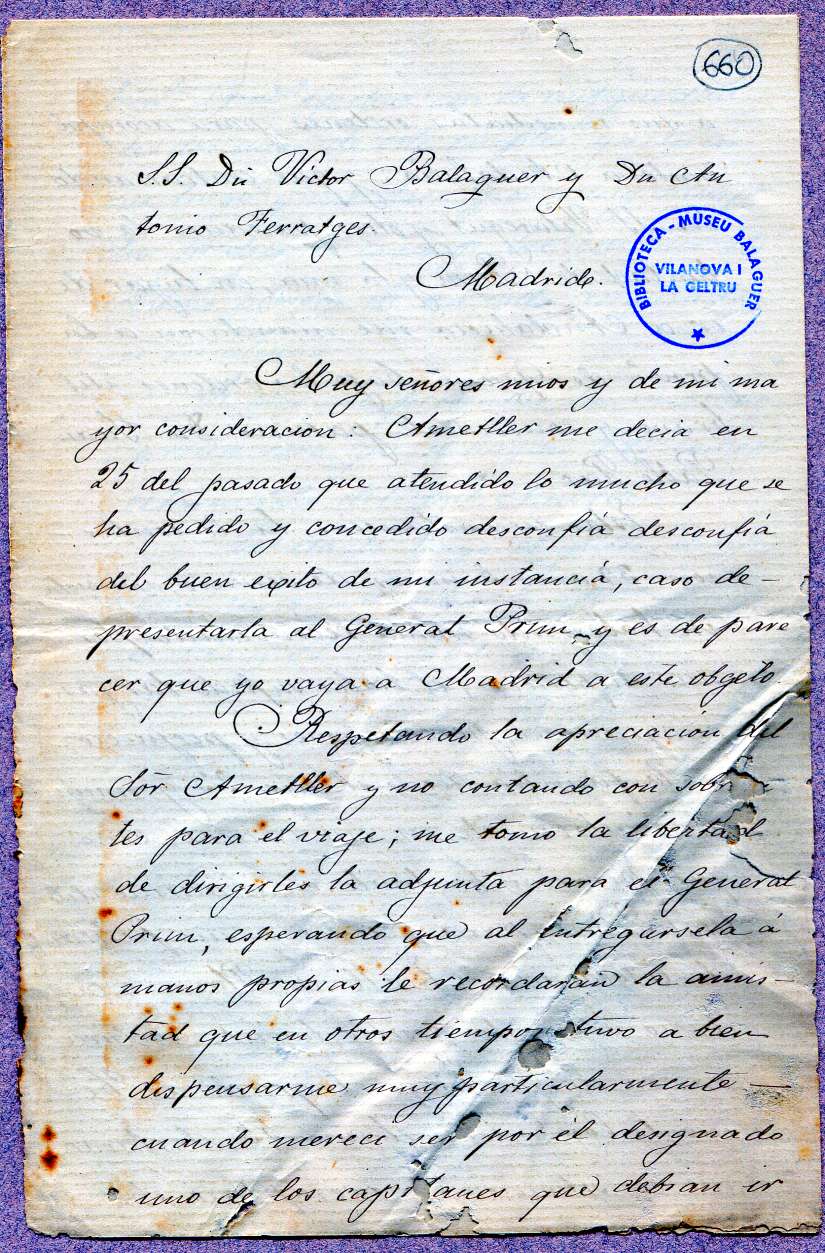 660
S.S. Dn Victor Balaguer y Dn An
tonio Ferratges.
Madrid.
BIBLIOTECA - MUSEU BALAGUER
VILANOVA I
LA GELTRU
Muy señores mios y de mi ma
yor consideracion: Ametller me decia en
25 del pasado que atendido lo mucho que se
ha pedido y concedido desconfiá desconfiá
del buen exito de mi instanciá, caso de-
presentarla al General Prim y es de pare
cer que yo vaya a Madrid a este obgeto
Respetando la apreciación del
Sór Ametller y no contando con sobr
tes para el viaje; me tomo la libertad
de dirigirles la adjunta para el General
Prim, esperando que al entregarsela á
manos propias le recordaran la amis-
tad que en otros tiempos tuvo a bien
dispensarme muy particularmente -
cuando mereci ser por él designado
uno de los capitanes que debian ir